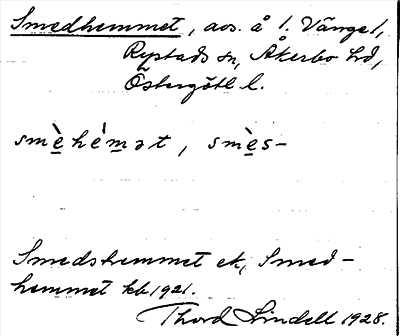 Smedhemmet, avs. å 1. Vänge 1,
Rystads sn, Åkerbo hd,
Östergötl l.
smὲhémət, smὲs-
Smedshemmet ek, Smed-
hemmet kb 1921.
Thord Lindell 1928.